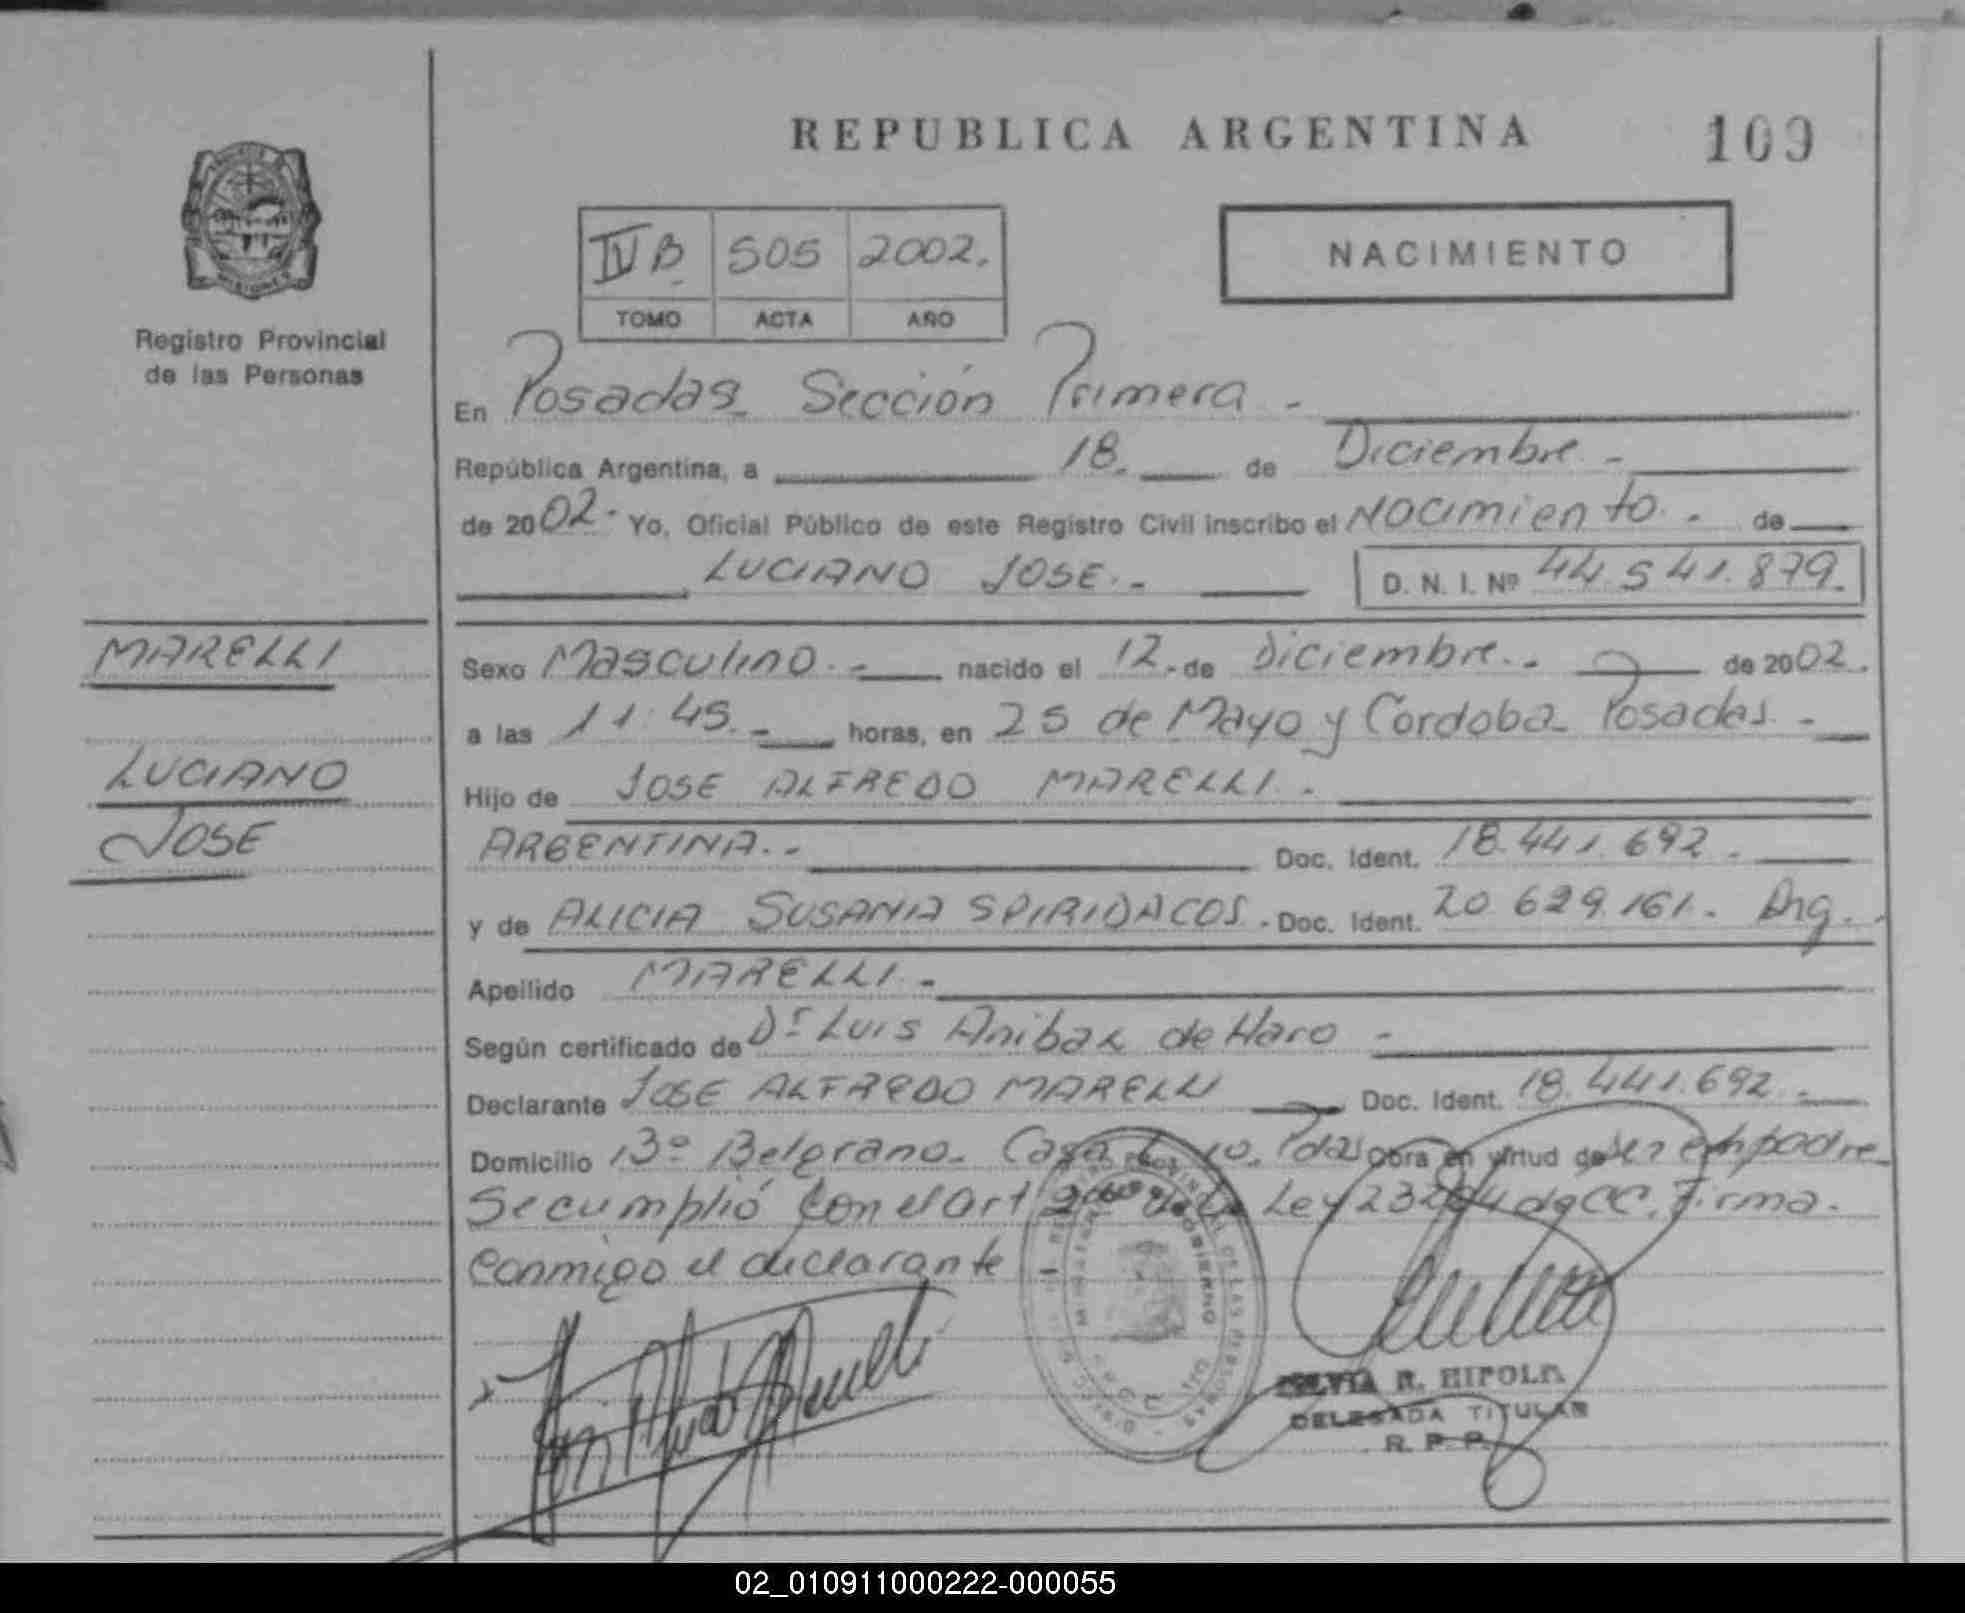 REPUBLICA ARGENTINA
109
IV B
505
2002.
TOMO
ACTA
AÑO
NACIMIENTO
Registro Provincial
de las Personas
En Posadas Sección Primera -
República Argentina, a 18. de Diciembre -
de 2002. Yo, Oficial Público de este Registro Civil inscribo el Nacimiento. - de
LUCIANO JOSE. - D. N. I. Nº 44.541.879.
MARELLI
LUCIANO
JOSE
Sexo Masculino. - nacido el 12. de Diciembre. - de 2002.
a las 11:45. - horas, en 25 de Mayo y Cordoba - Posadas. -
Hijo de JOSE ALFREDO MARELLI. -
ARGENTINA. - Doc. Ident. 18.441.692. -
y de ALICIA SUSANA SPIRIDACOS. - Doc. Ident. 20.629.161. - Arg.
Apellido MARELLI. -
Según certificado de Dr Luis Anibal de Haro -
Declarante JOSE ALFREDO MARELLI Doc. Ident. 18.441.692. -
Domicilio Bº Belgrano. Casa 10. Pdas Obra en virtud de ser el padre
Se cumplió con el art de la Ley 23264 de CC. Firma.
Conmigo el declarante -
SILVIA R. HIPOLD
DELEGADA TITULAR
R. P. P.
02_010911000222-000055